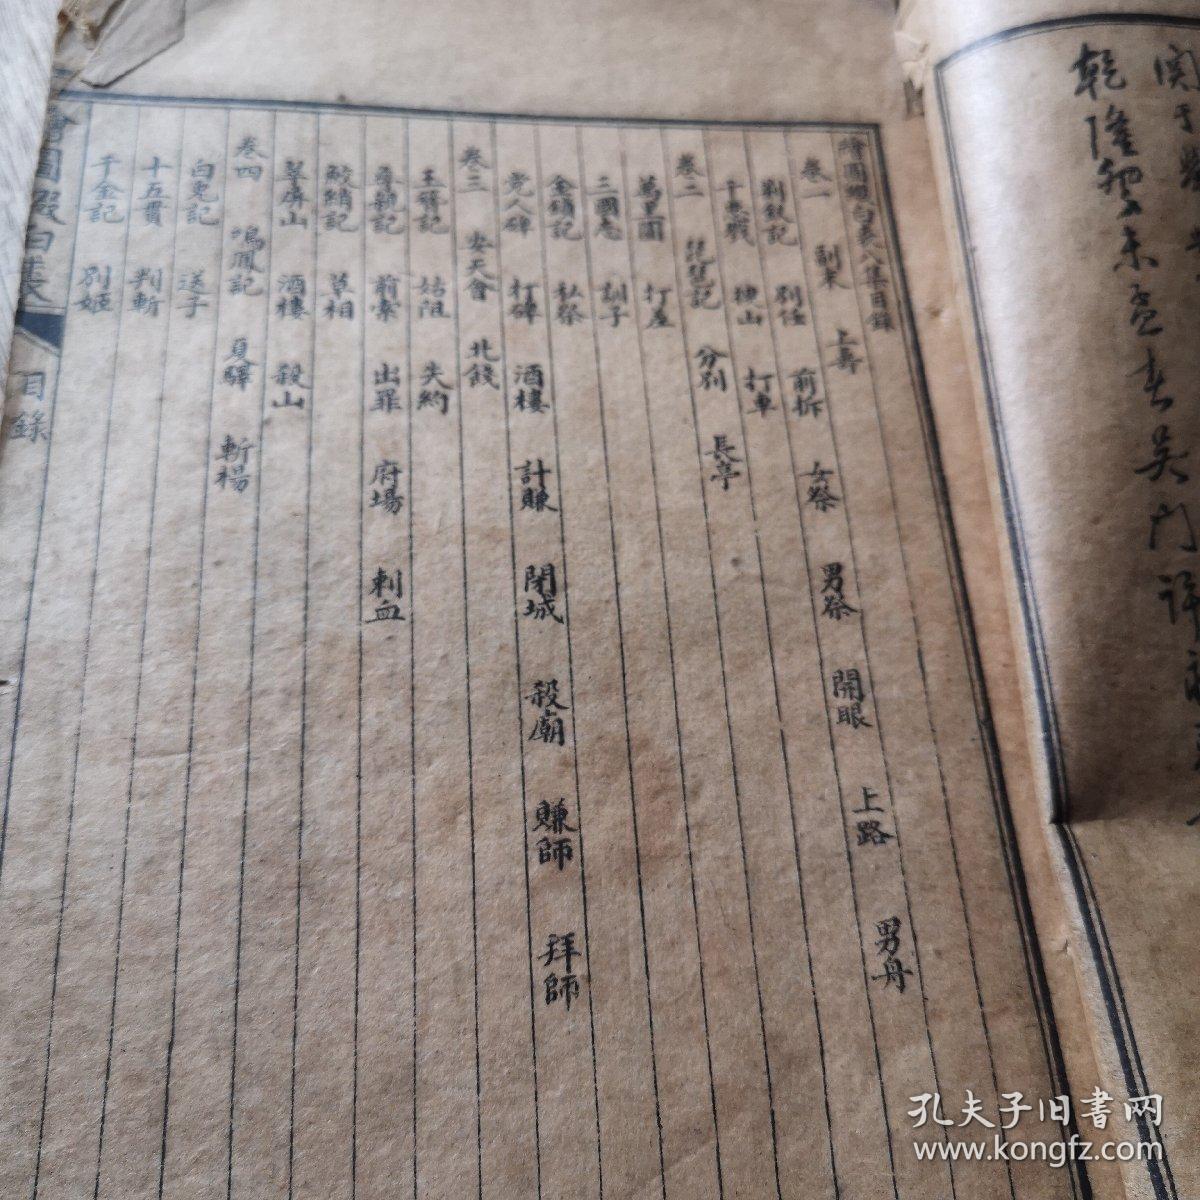 乾隆癸未孟春吳門
繪圖綴白裘八集目錄
卷一 副末 上壽
荊釵記 別任 前拆 女祭 男祭 開眼 上路 男舟
千忠戮 搜山 打車
卷二 琵琶記 分別 長亭
萬里圓 打差
三國志 訓子
金鎖記 私祭
党人碑 打碑 酒樓 計賺 閉城 殺廟 賺師 拜師
卷三 安天會 北餞
玉簪記 姑阻 失約
尋親記 前索 出罪 府場 刺血
鮫綃記 草相
翠屏山 酒樓 殺山
卷四 鳴鳳記 夏驛 斬楊
白兔記 送子
十五貫 判斬
千金記 別姬
繪圖綴白裘 目錄
孔夫子旧書网
www.kongfz.com